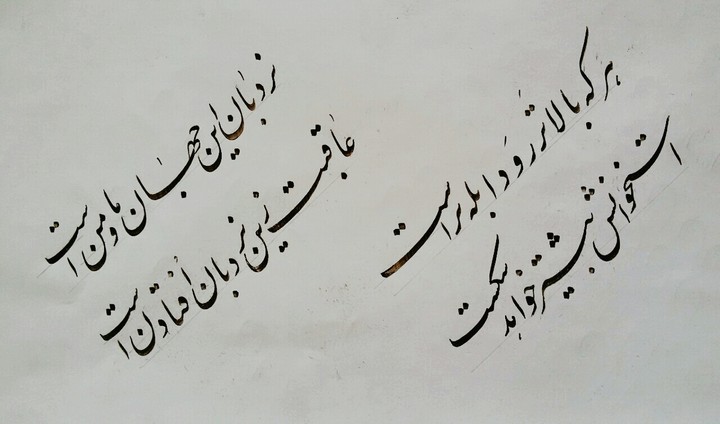 هر که بالاتر رَوَد ابله تر است
استخوانش بیشتر خواهد شکست
نردبان این جهان ما و من است
عاقبت زین نردبان اُفتادن است